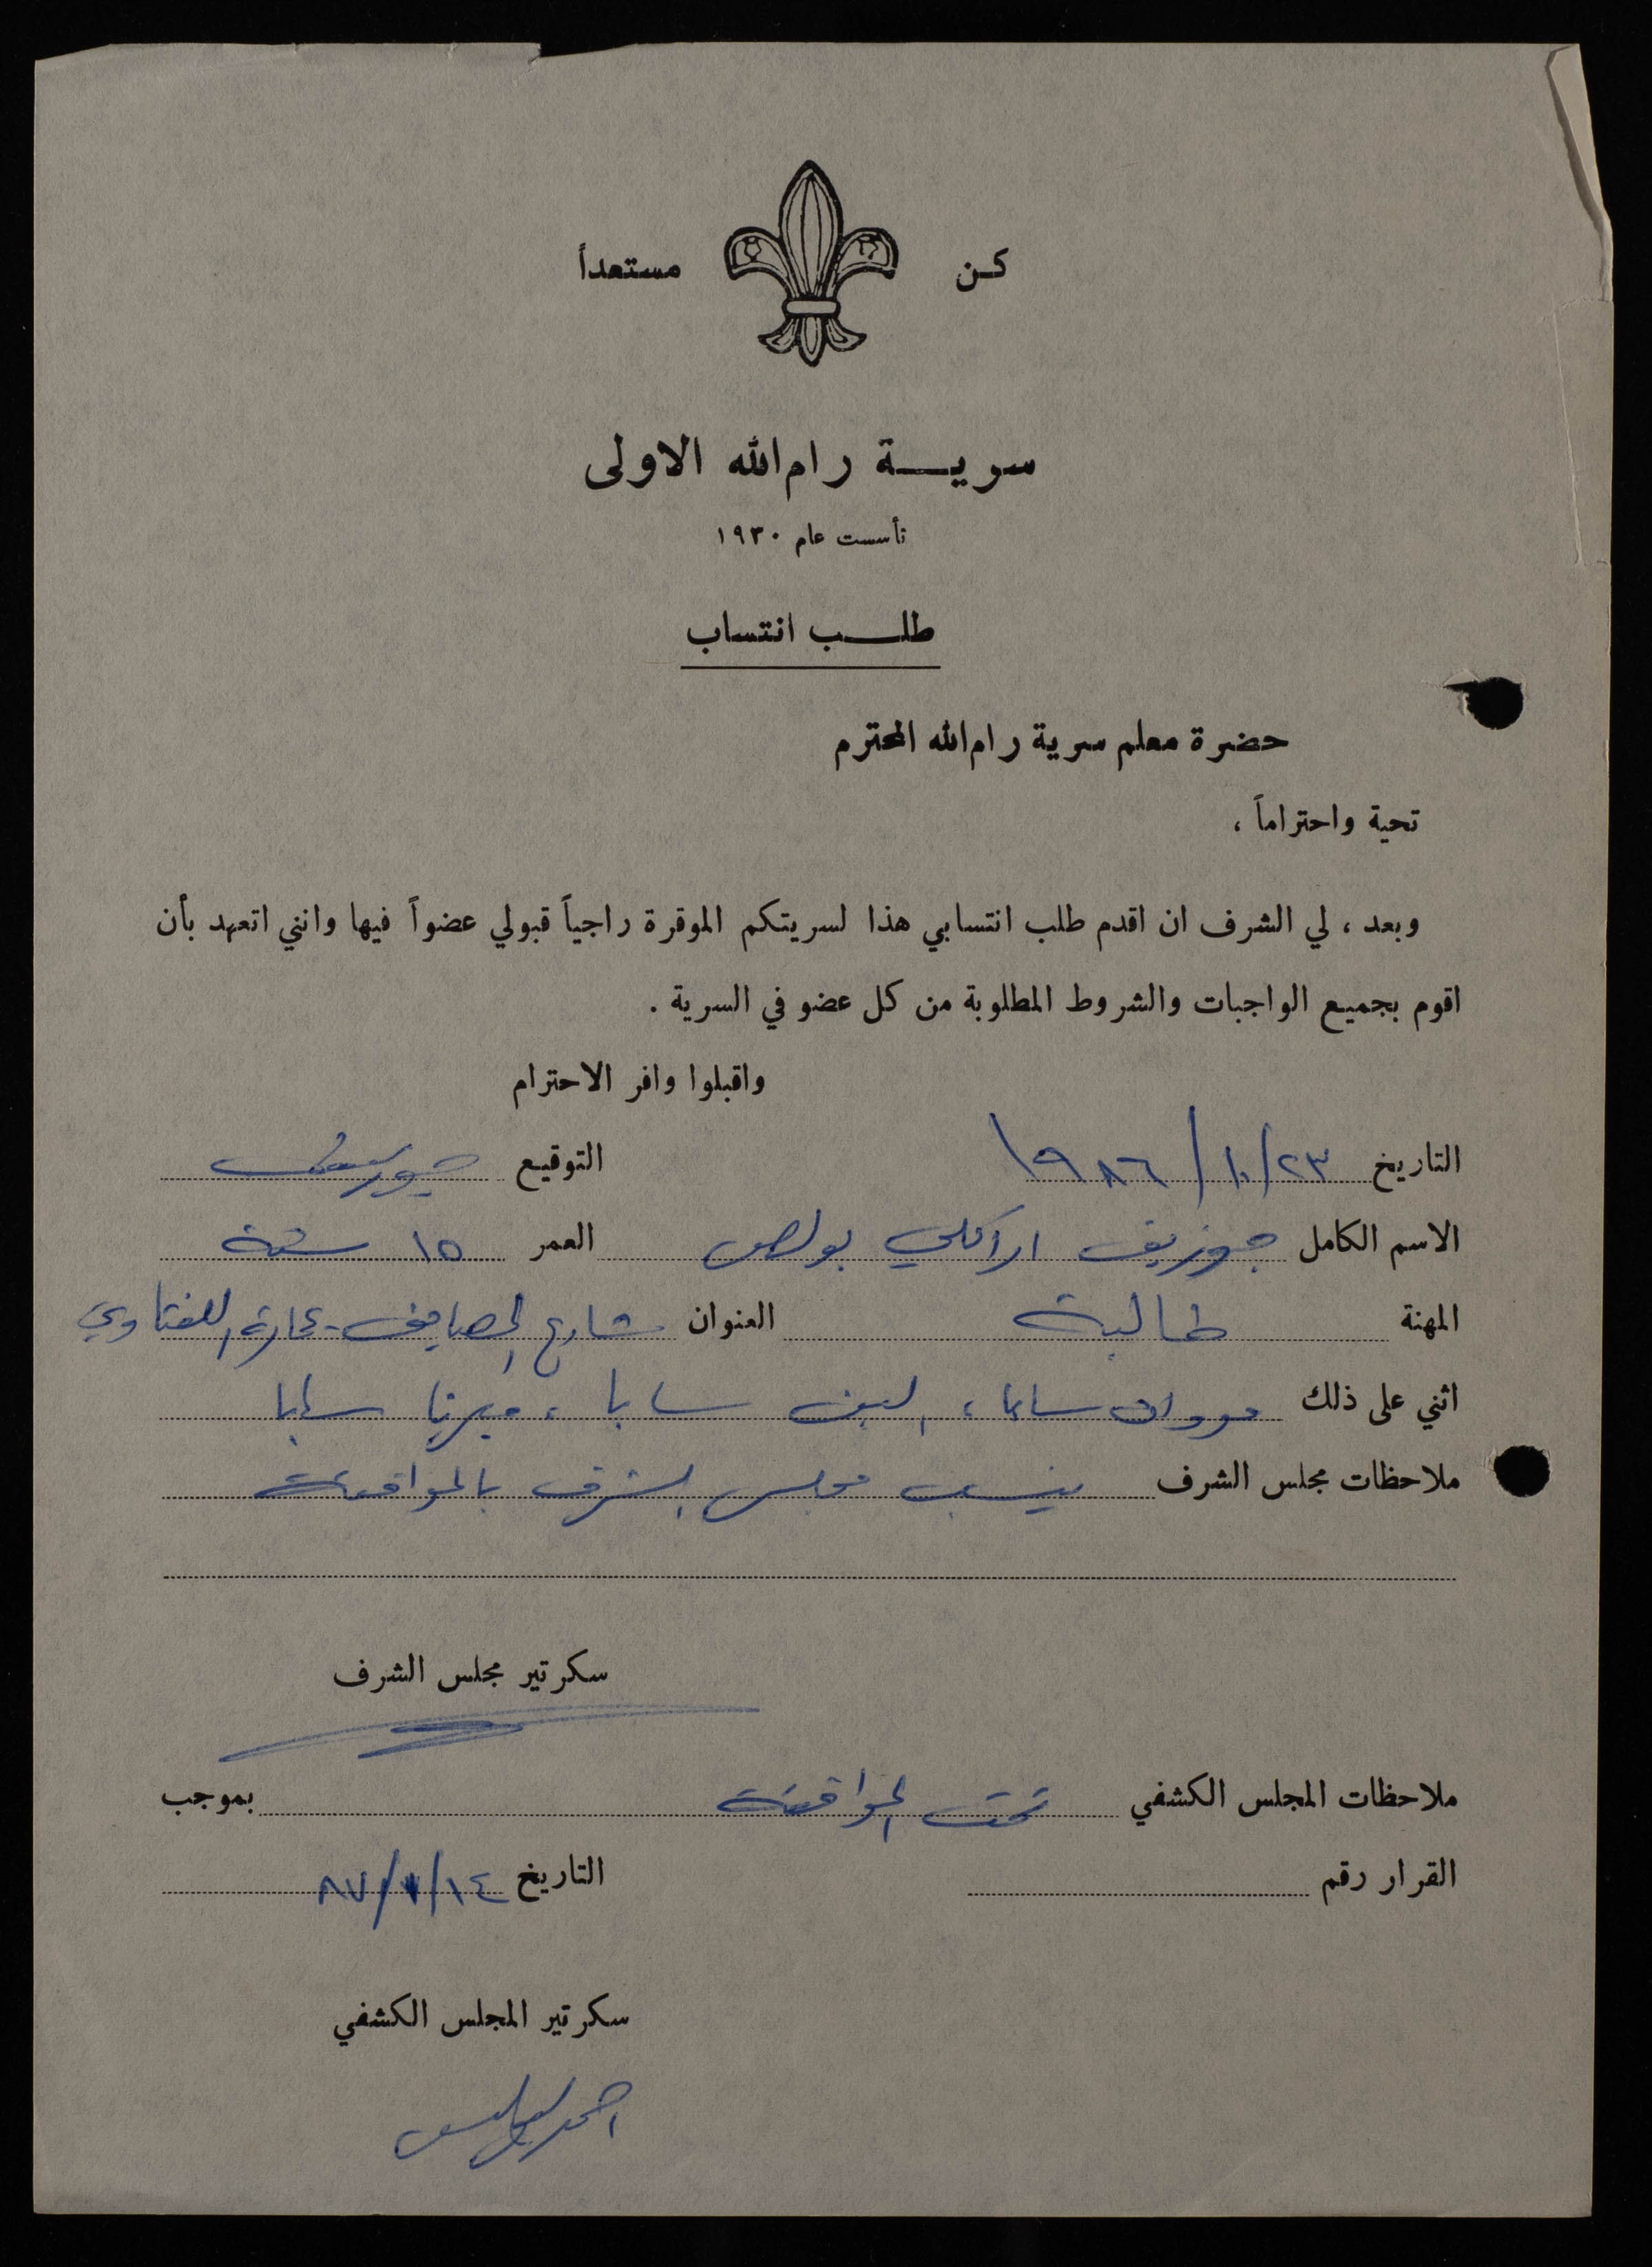 كن مستعداً
سرية رام الله الاولى
تأسست عام ١٩٣٠
طلب انتساب
حضرة معلم سرية رام الله المحترم
تحية واحتراماً ،
وبعد ، لي الشرف ان اقدم طلب انتسابي هذا لسريتكم الموقرة راجياً قبولي عضواً فيها وانني اتعهد بأن
اقوم بجميع الواجبات والشروط المطلوبة من كل عضو في السرية .
واقبلوا وافر الاحترام
التاريخ ٢٣/١٠/١٩٨٦ التوقيع
الاسم الكامل جوزيف اراكلي بولص العمر ١٥ سنة
المهنة طالبة العنوان شارع المصايف - عمارة
اثني على ذلك مروان سابا ، الين سابا ، ميرنا سابا
ملاحظات مجلس الشرف ينسب مجلس الشرف بالموافقة
سكرتير مجلس الشرف
ملاحظات المجلس الكشفي تمت الموافقة بموجب
القرار رقم التاريخ ١٤/١/٨٧
سكرتير المجلس الكشفي